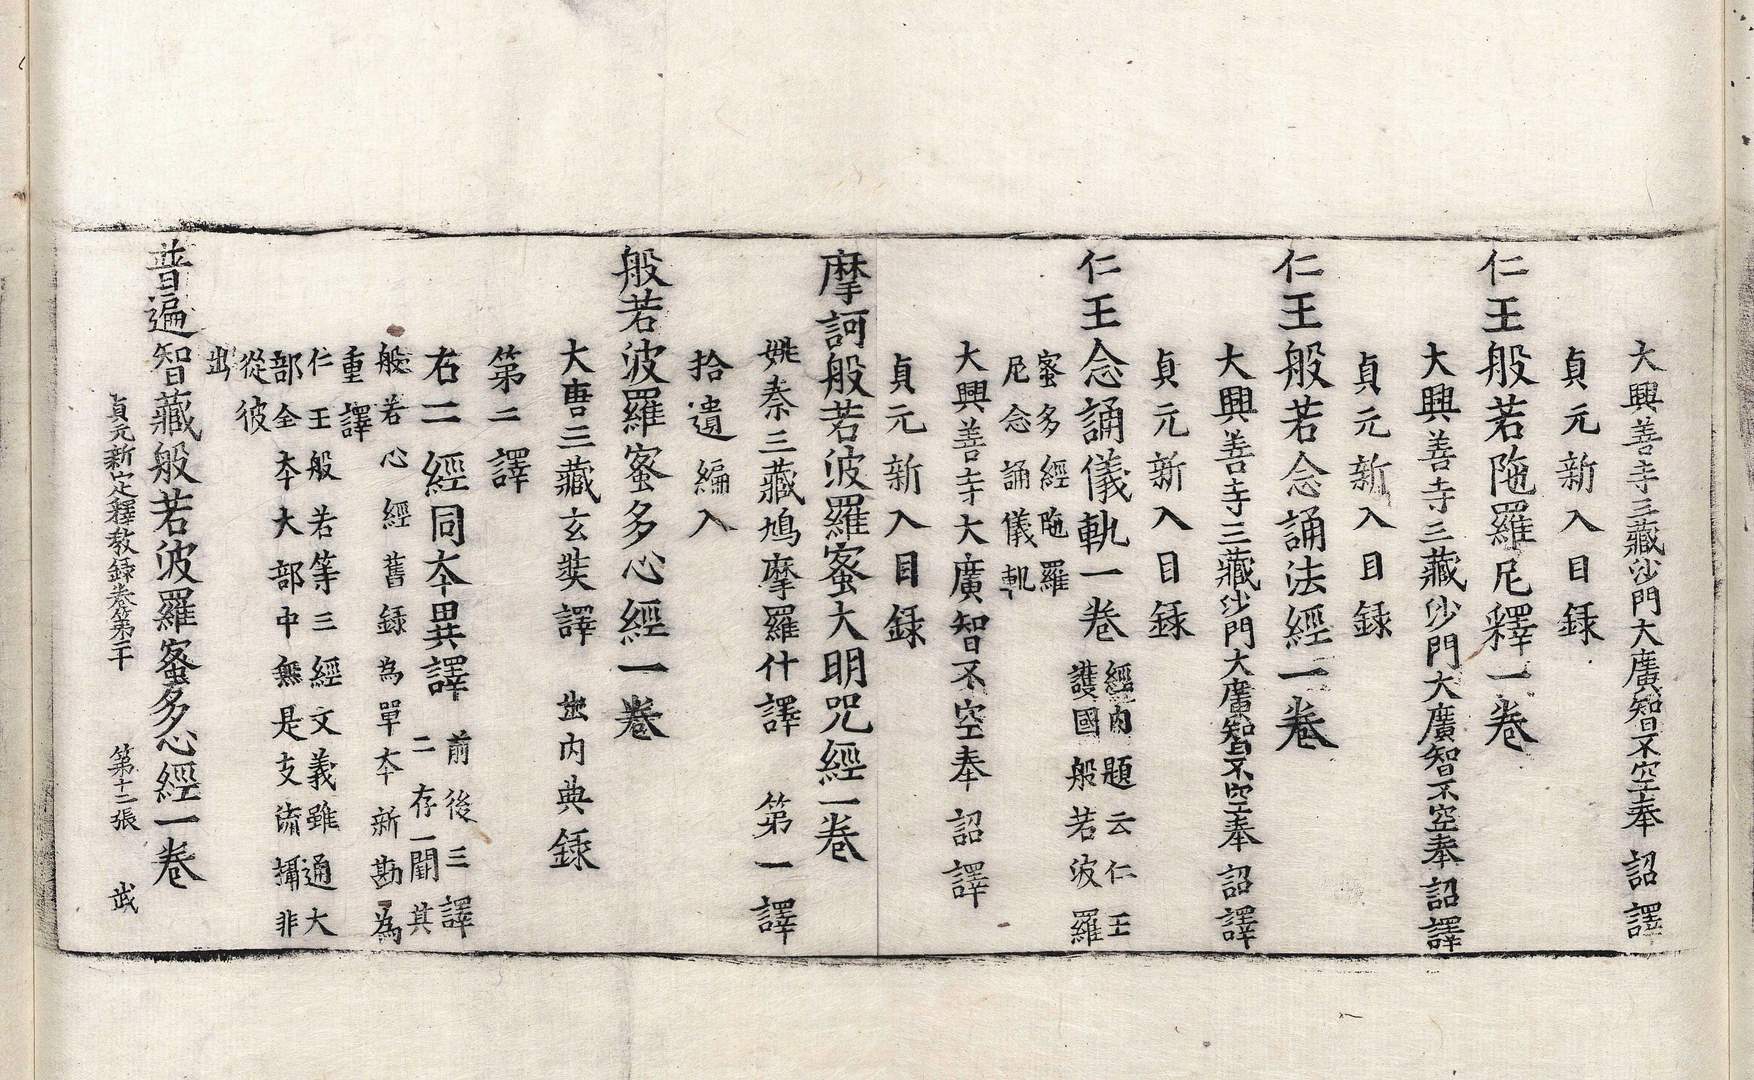 大興善寺三藏沙門大廣智不空奉 詔譯
貞元新入目錄
仁王般若陁羅尼釋一卷
大興善寺三藏沙門大廣智不空奉 詔譯
貞元新入目錄
仁王般若念誦法經一卷
大興善寺三藏沙門大廣智不空奉 詔譯
貞元新入目錄
仁王念誦儀軌一卷 經內題云仁王
護國般若波羅
蜜多經陁羅
尼念誦儀軌
大興善寺大廣智不空奉 詔譯
貞元新入目錄
摩訶般若波羅蜜大明咒經一卷
姚秦三藏鳩摩羅什譯 第一譯
拾遺編入
般若波羅蜜多心經一卷
大唐三藏玄奘譯 出內典錄
第二譯
右二經同本異譯 前後三譯
二存一闕其
般若心經舊錄為單本新勘為
重譯
仁王般若等三經文義雖通大
部全本大部中無是支流攝非
從彼
出
普遍智藏般若波羅蜜多心經一卷
貞元新定釋教錄卷第二十 第十二張 武